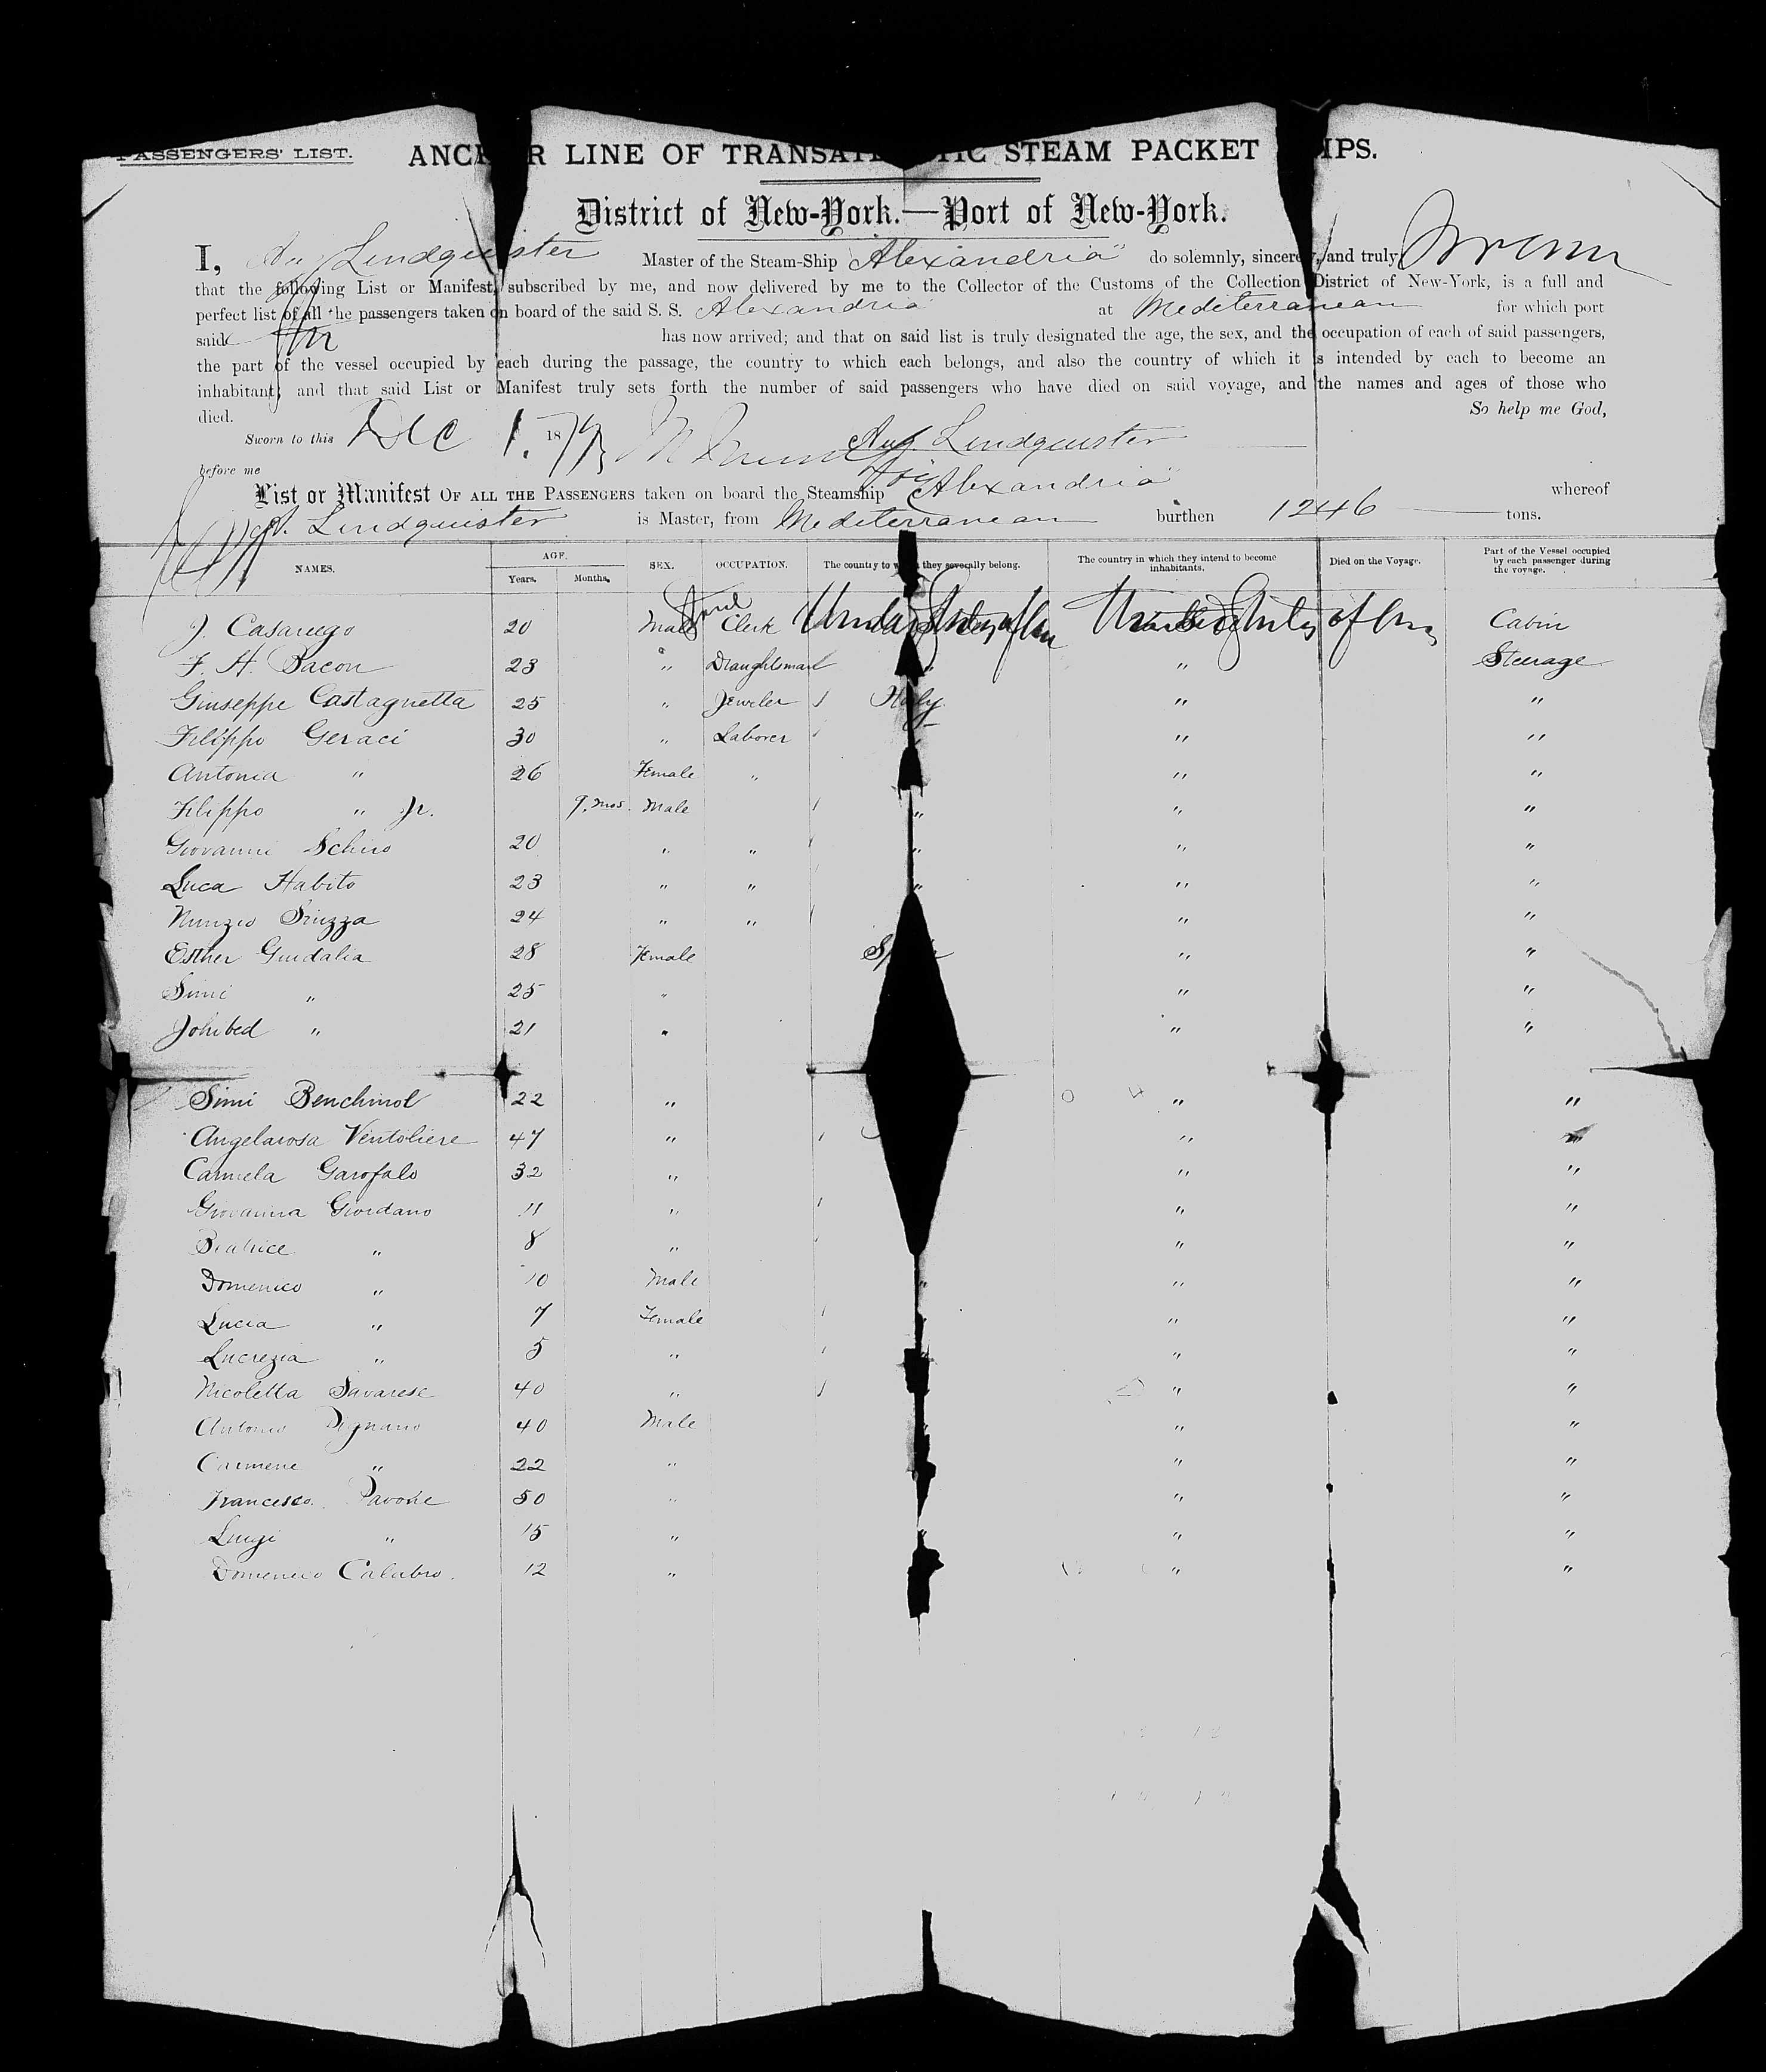 PASSENGERS' LIST. ANCHOR LINE OF TRANSATLANTIC STEAM PACKET SHIPS.
District of New-York.—Port of New-York.
I, Aug Lindquister Master of the Steam-Ship Alexandria do solemnly, sincerely, and truly
that the following List or Manifest, subscribed by me, and now delivered by me to the Collector of the Customs of the Collection District of New-York, is a full and
perfect list of all the passengers taken on board of the said S. S. Alexandria at Mediterranean for which port
said has now arrived; and that on said list is truly designated the age, the sex, and the occupation of each of said passengers,
the part of the vessel occupied by each during the passage, the country to which each belongs, and also the country of which it is intended by each to become an
inhabitant; and that said List or Manifest truly sets forth the number of said passengers who have died on said voyage, and the names and ages of those who
died. So help me God,
Sworn to this Dec 1. 1879 Aug. Lindquister
before me Alexandria
List or Manifest OF ALL THE PASSENGERS taken on board the Steamship Alexandria whereof
Lindquister is Master, from Mediterranean burthen 1246 tons.
NAMES. AGE. Years. Months. SEX. OCCUPATION. The country to which they severally belong. The country in which they intend to become inhabitants. Died on the Voyage. Part of the Vessel occupied by each passenger during the voyage.
J. Casanego 20 Male Clerk United States of Am United States of Am Cabin
F. H. Bacon 23 " Draughtsman " " Steerage
Giuseppe Castagnetta 25 " Jeweler Italy " "
Filippo Geraci 30 " Laborer " "
Antonia " 26 Female " " "
Filippo " Jr. 9. mos. Male " " "
Giovanni Schiro 20 " " " " "
Luca Habito 23 " " " " "
Nunzio 24 " " " "
Esther Guidalia 28 Female " "
Simi " 25 " " "
Johibed " 21 " " "
Simi Benchimol 22 " " "
Angelarosa Ventoliere 47 " " "
Carmela Garofalo 32 " " "
Giovanna Giordano 11 " " "
Beatrice " 8 " " "
Domenico " 10 Male " " "
Lucia " 7 Female " "
Lucrezia " 5 " " "
Nicoletta Savarese 40 " " "
Antonio 40 Male " "
Carmene " 22 " " "
Francesco Pavone 50 " " "
Luigi " 15 " " "
Domenico Calabro. 12 " " "